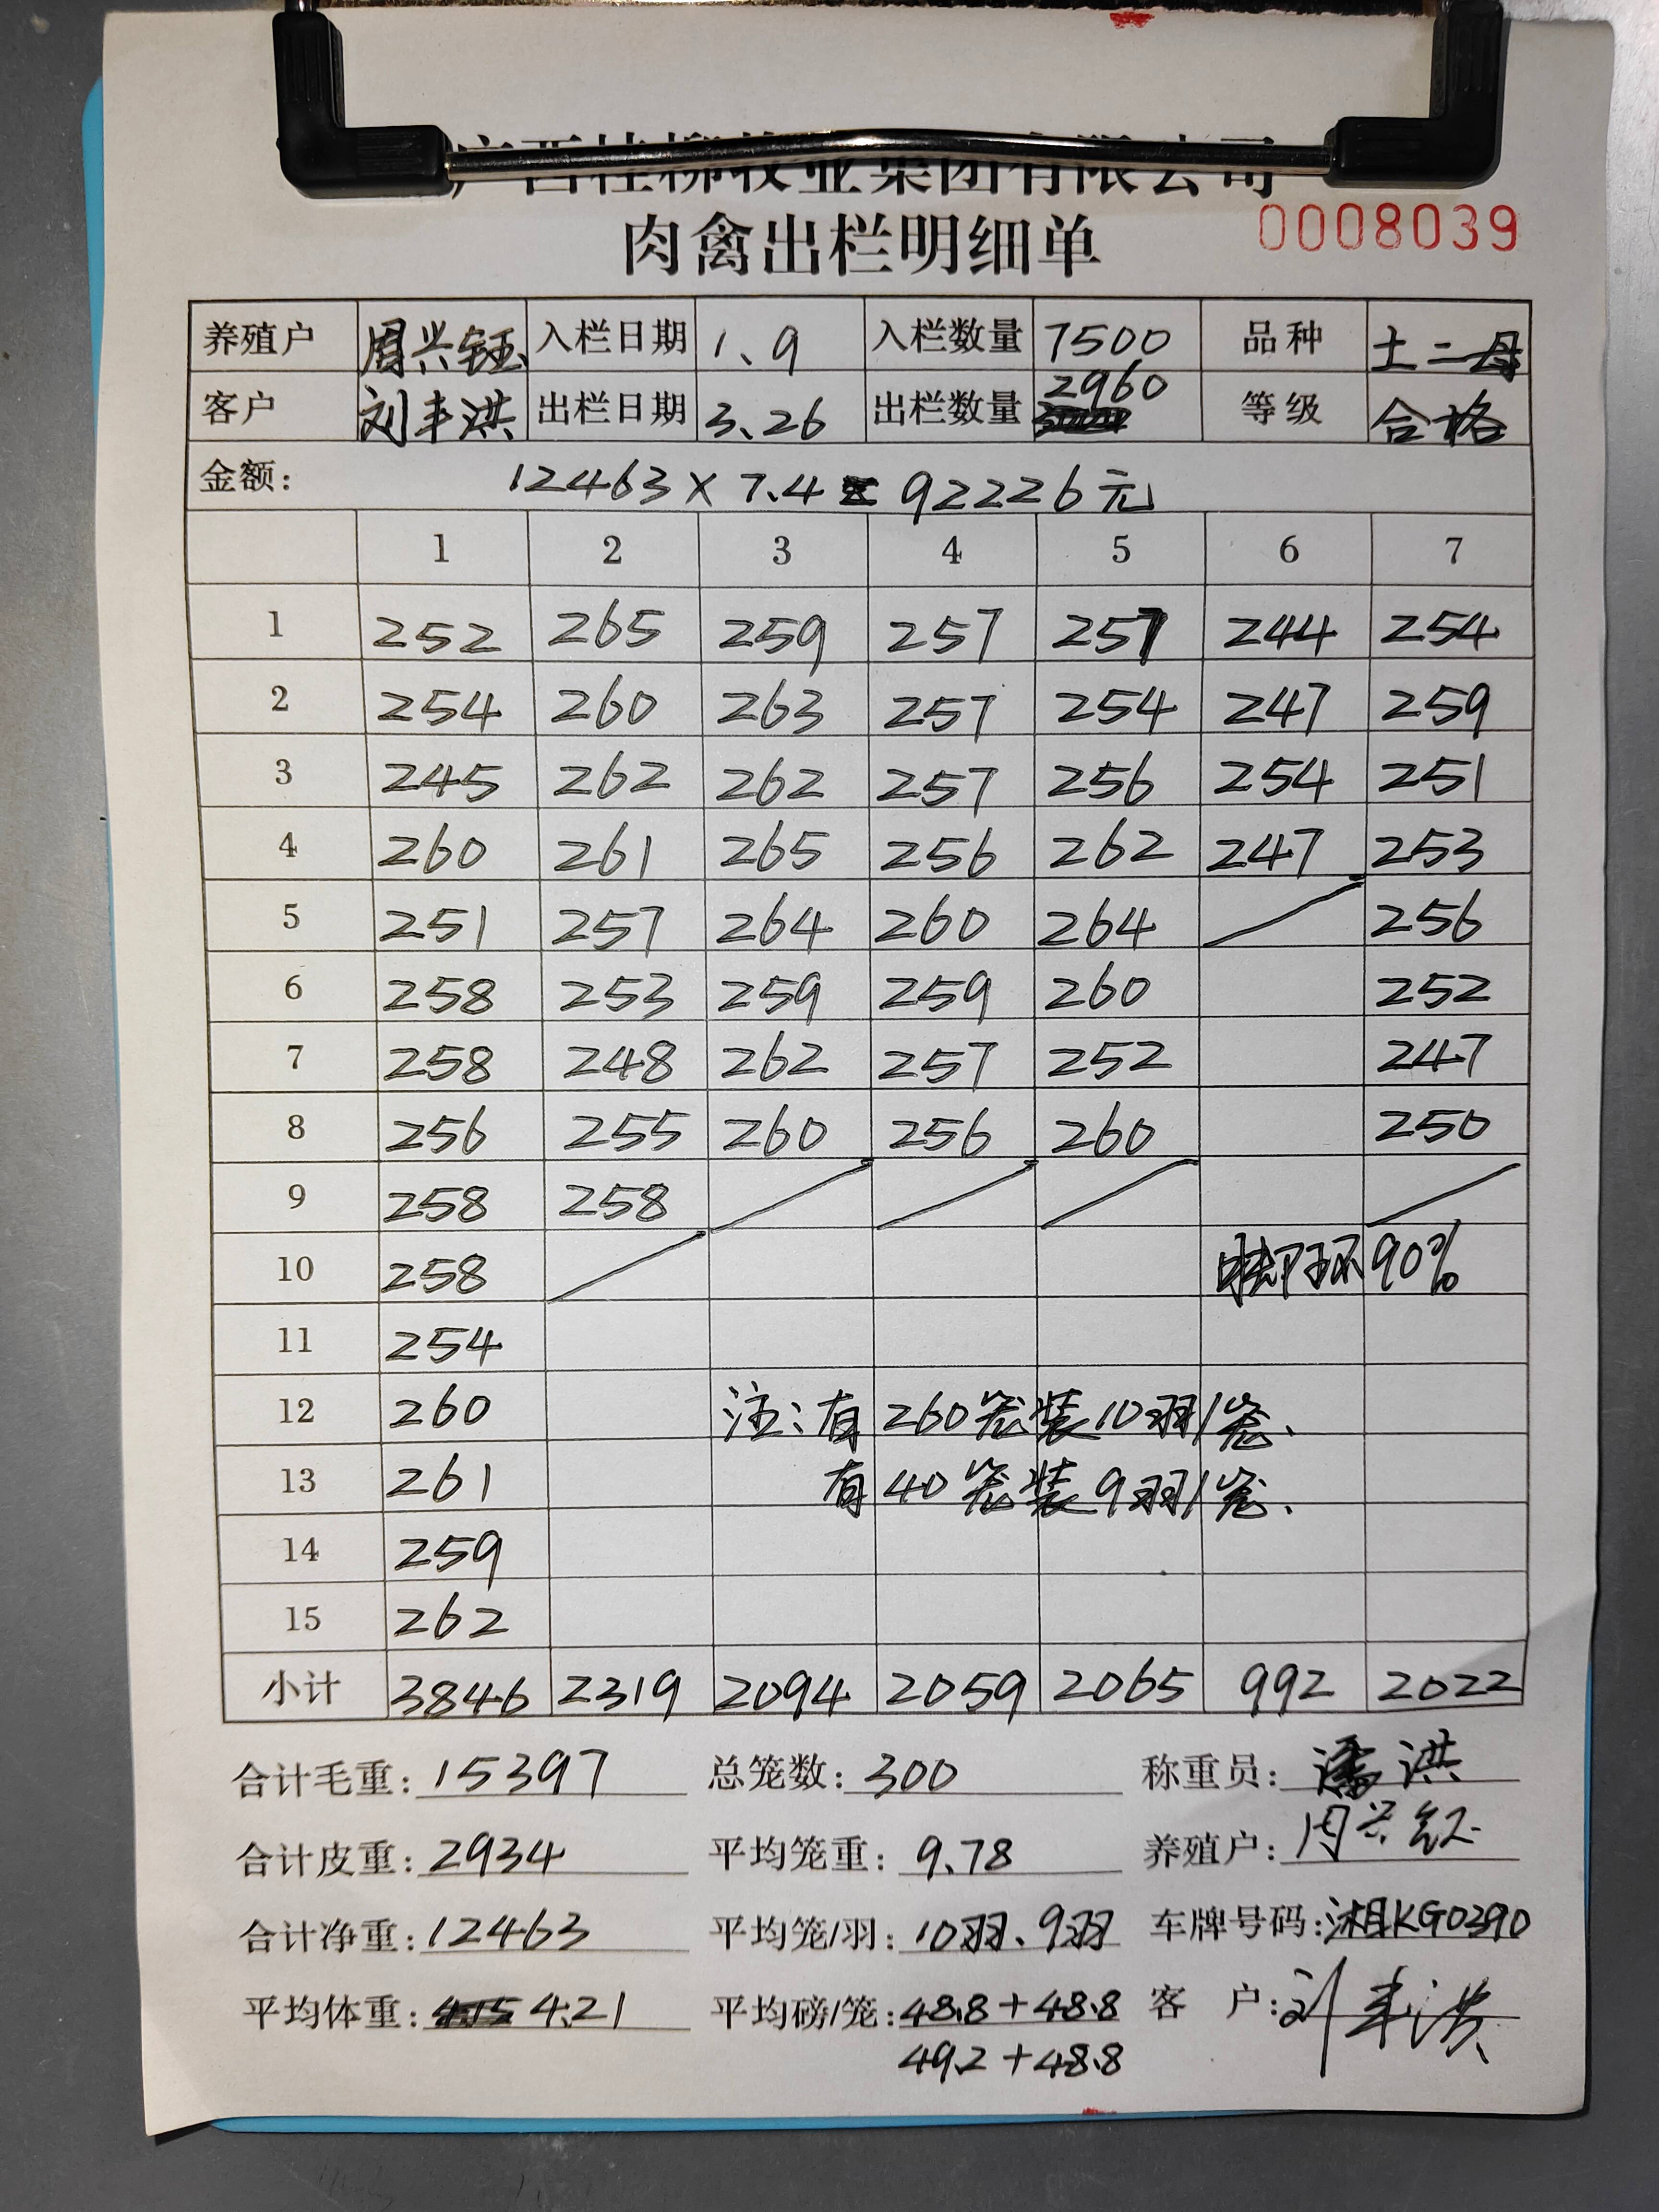 广西桂柳牧业集团有限公司
肉禽出栏明细单
0008039
养殖户 周兴钰 入栏日期 1、9 入栏数量 7500 品种 土二母
客户 刘丰洪 出栏日期 3、26 出栏数量 2960 等级 合格
金额: 12463×7.4=92226元
1 2 3 4 5 6 7
1 252 265 259 257 257 244 254
2 254 260 263 257 254 247 259
3 245 262 262 257 256 254 251
4 260 261 265 256 262 247 253
5 251 257 264 260 264 256
6 258 253 259 259 260 252
7 258 248 262 257 252 247
8 256 255 260 256 260 250
9 258 258
10 258 90%
11 254
12 260 注:有260笼装10羽/笼、
13 261 有40笼装9羽/笼、
14 259
15 262
小计 3846 2319 2094 2059 2065 992 2022
合计毛重: 15397 总笼数: 300 称重员: 潘洪
合计皮重: 2934 平均笼重: 9.78 养殖户: 周兴钰
合计净重: 12463 平均笼/羽: 10羽、9羽 车牌号码: 湘KG0390
平均体重: 4.21 平均磅/笼: 48.8+48.8 客 户: 刘丰洪
49.2+48.8